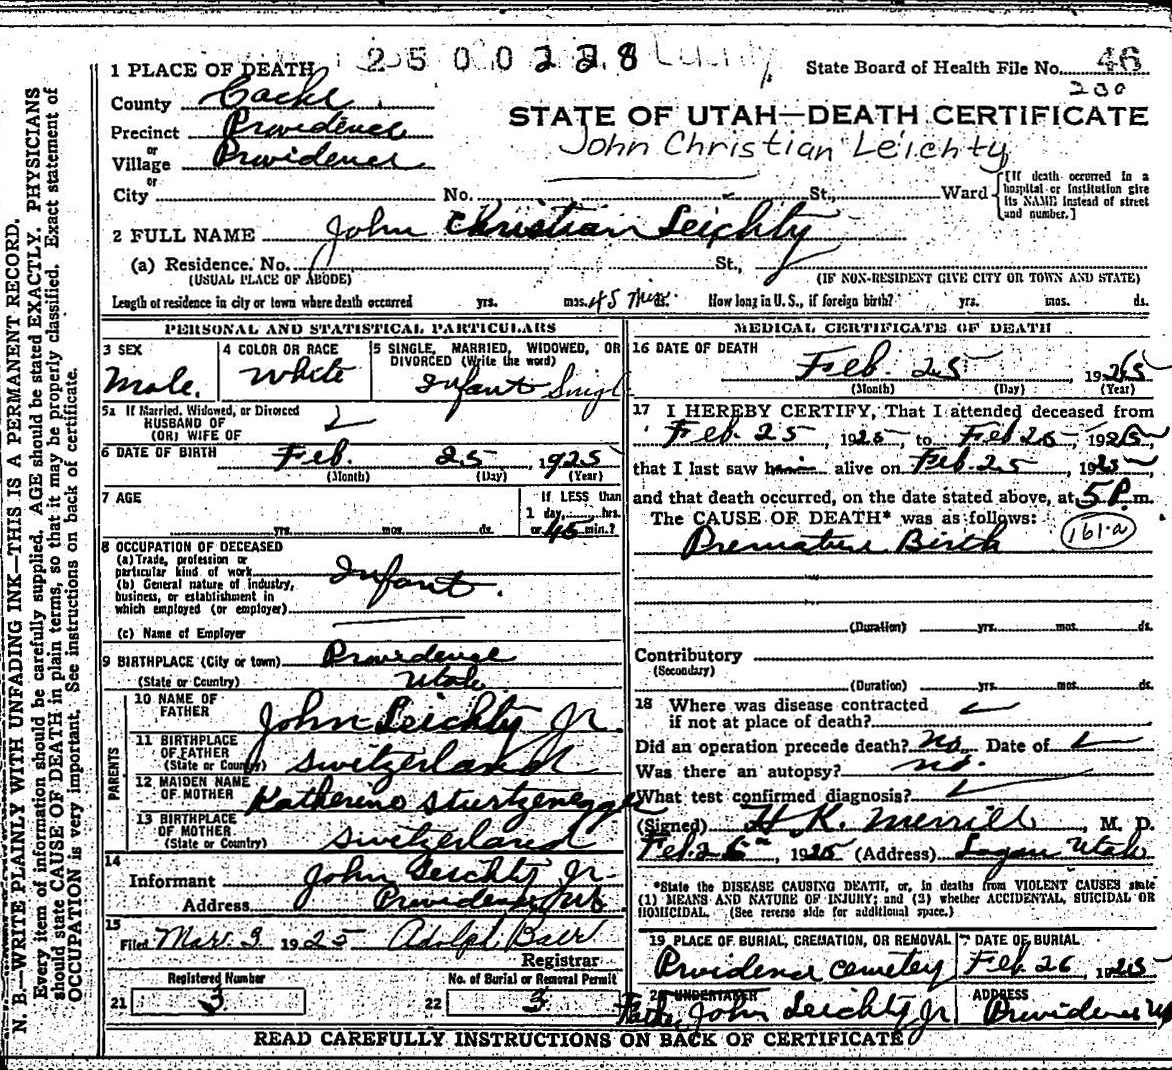 2500228
46
State Board of Health File No.
200
1 PLACE OF DEATH
County Cache
Precinct Providence
or
Village Providence
or
City No. St., Ward
STATE OF UTAH—DEATH CERTIFICATE
John Christian Leichty
[If death occurred in a hospital or institution give its NAME instead of street and number.]
2 FULL NAME John Christian Leichty
(a) Residence. No. St.,
(USUAL PLACE OF ABODE) (IF NON-RESIDENT GIVE CITY OR TOWN AND STATE)
Length of residence in city or town where death occurred yrs. mos. 45 Min. ds. How long in U. S., if foreign birth? yrs. mos. ds.
PERSONAL AND STATISTICAL PARTICULARS
3 SEX
Male.
4 COLOR OR RACE
White
5 SINGLE, MARRIED, WIDOWED, OR
DIVORCED (Write the word)
Infant Singl
5a If Married, Widowed, or Divorced
HUSBAND OF
(OR) WIFE OF
6 DATE OF BIRTH Feb. 25 1925
(Month) (Day) (Year)
7 AGE
yrs. mos. ds.
If LESS than
1 day, hrs.
or 45 min.?
8 OCCUPATION OF DECEASED
(a) Trade, profession or
particular kind of work
(b) General nature of industry,
business, or establishment in
which employed (or employer)
Infant.
(c) Name of Employer
9 BIRTHPLACE (City or town) Providence
(State or Country) Utah
PARENTS
10 NAME OF
FATHER John Leichty Jr.
11 BIRTHPLACE
OF FATHER
(State or County) Switzerland
12 MAIDEN NAME
OF MOTHER Katherino Sturtzenegger
13 BIRTHPLACE
OF MOTHER
(State or Country) Switzerland
14
Informant John Leichty Jr.
Address Providence, Ut.
15
Filed Mar. 3 1925 Adolph Baer
Registrar
Registered Number
21 3
No. of Burial or Removal Permit
22 3
MEDICAL CERTIFICATE OF DEATH
16 DATE OF DEATH
Feb. 25 1925
(Month) (Day) (Year)
17 I HEREBY CERTIFY, That I attended deceased from
Feb. 25, 1925, to Feb 25, 1925,
that I last saw him alive on Feb. 25, 1925
and that death occurred, on the date stated above, at 5 P.m.
The CAUSE OF DEATH* was as follows:
161-a
Premature Birth
(Duration) yrs. mos. ds.
Contributory
(Secondary)
(Duration) yrs. mos. ds.
18 Where was disease contracted
if not at place of death?
Did an operation precede death? No. Date of
Was there an autopsy? no.
What test confirmed diagnosis?
(Signed) H K. Merrill, M. D.
Feb. 26, 1925 (Address) Logan Utah
*State the DISEASE CAUSING DEATH, or, in deaths from VIOLENT CAUSES state
(1) MEANS AND NATURE OF INJURY; and (2) whether ACCIDENTAL, SUICIDAL OR
HOMICIDAL. (See reverse side for additional space.)
19 PLACE OF BURIAL, CREMATION, OR REMOVAL
Providence Cemetery
DATE OF BURIAL
Feb 26 1925
20 UNDERTAKER
Father John Leichty Jr
ADDRESS
Providence Ut
READ CAREFULLY INSTRUCTIONS ON BACK OF CERTIFICATE
N. B.—WRITE PLAINLY WITH UNFADING INK—THIS IS A PERMANENT RECORD.
Every item of information should be carefully supplied. AGE should be stated EXACTLY. PHYSICIANS
should state CAUSE OF DEATH in plain terms, so that it may be properly classified. Exact statement of
OCCUPATION is very important. See instructions on back of certificate.